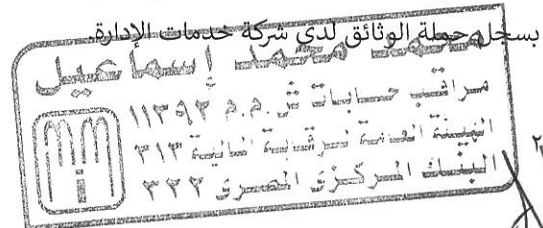 بسجل حملة الوثائق لدى شركة خدمات الإدارة.
محمد محمد إسماعيل
مراقب حسابات س.م.م ١١٣٩٢
الهيئة العامة للرقابة المالية ٣١٣
البنك المركزى المصرى ٣٢٢